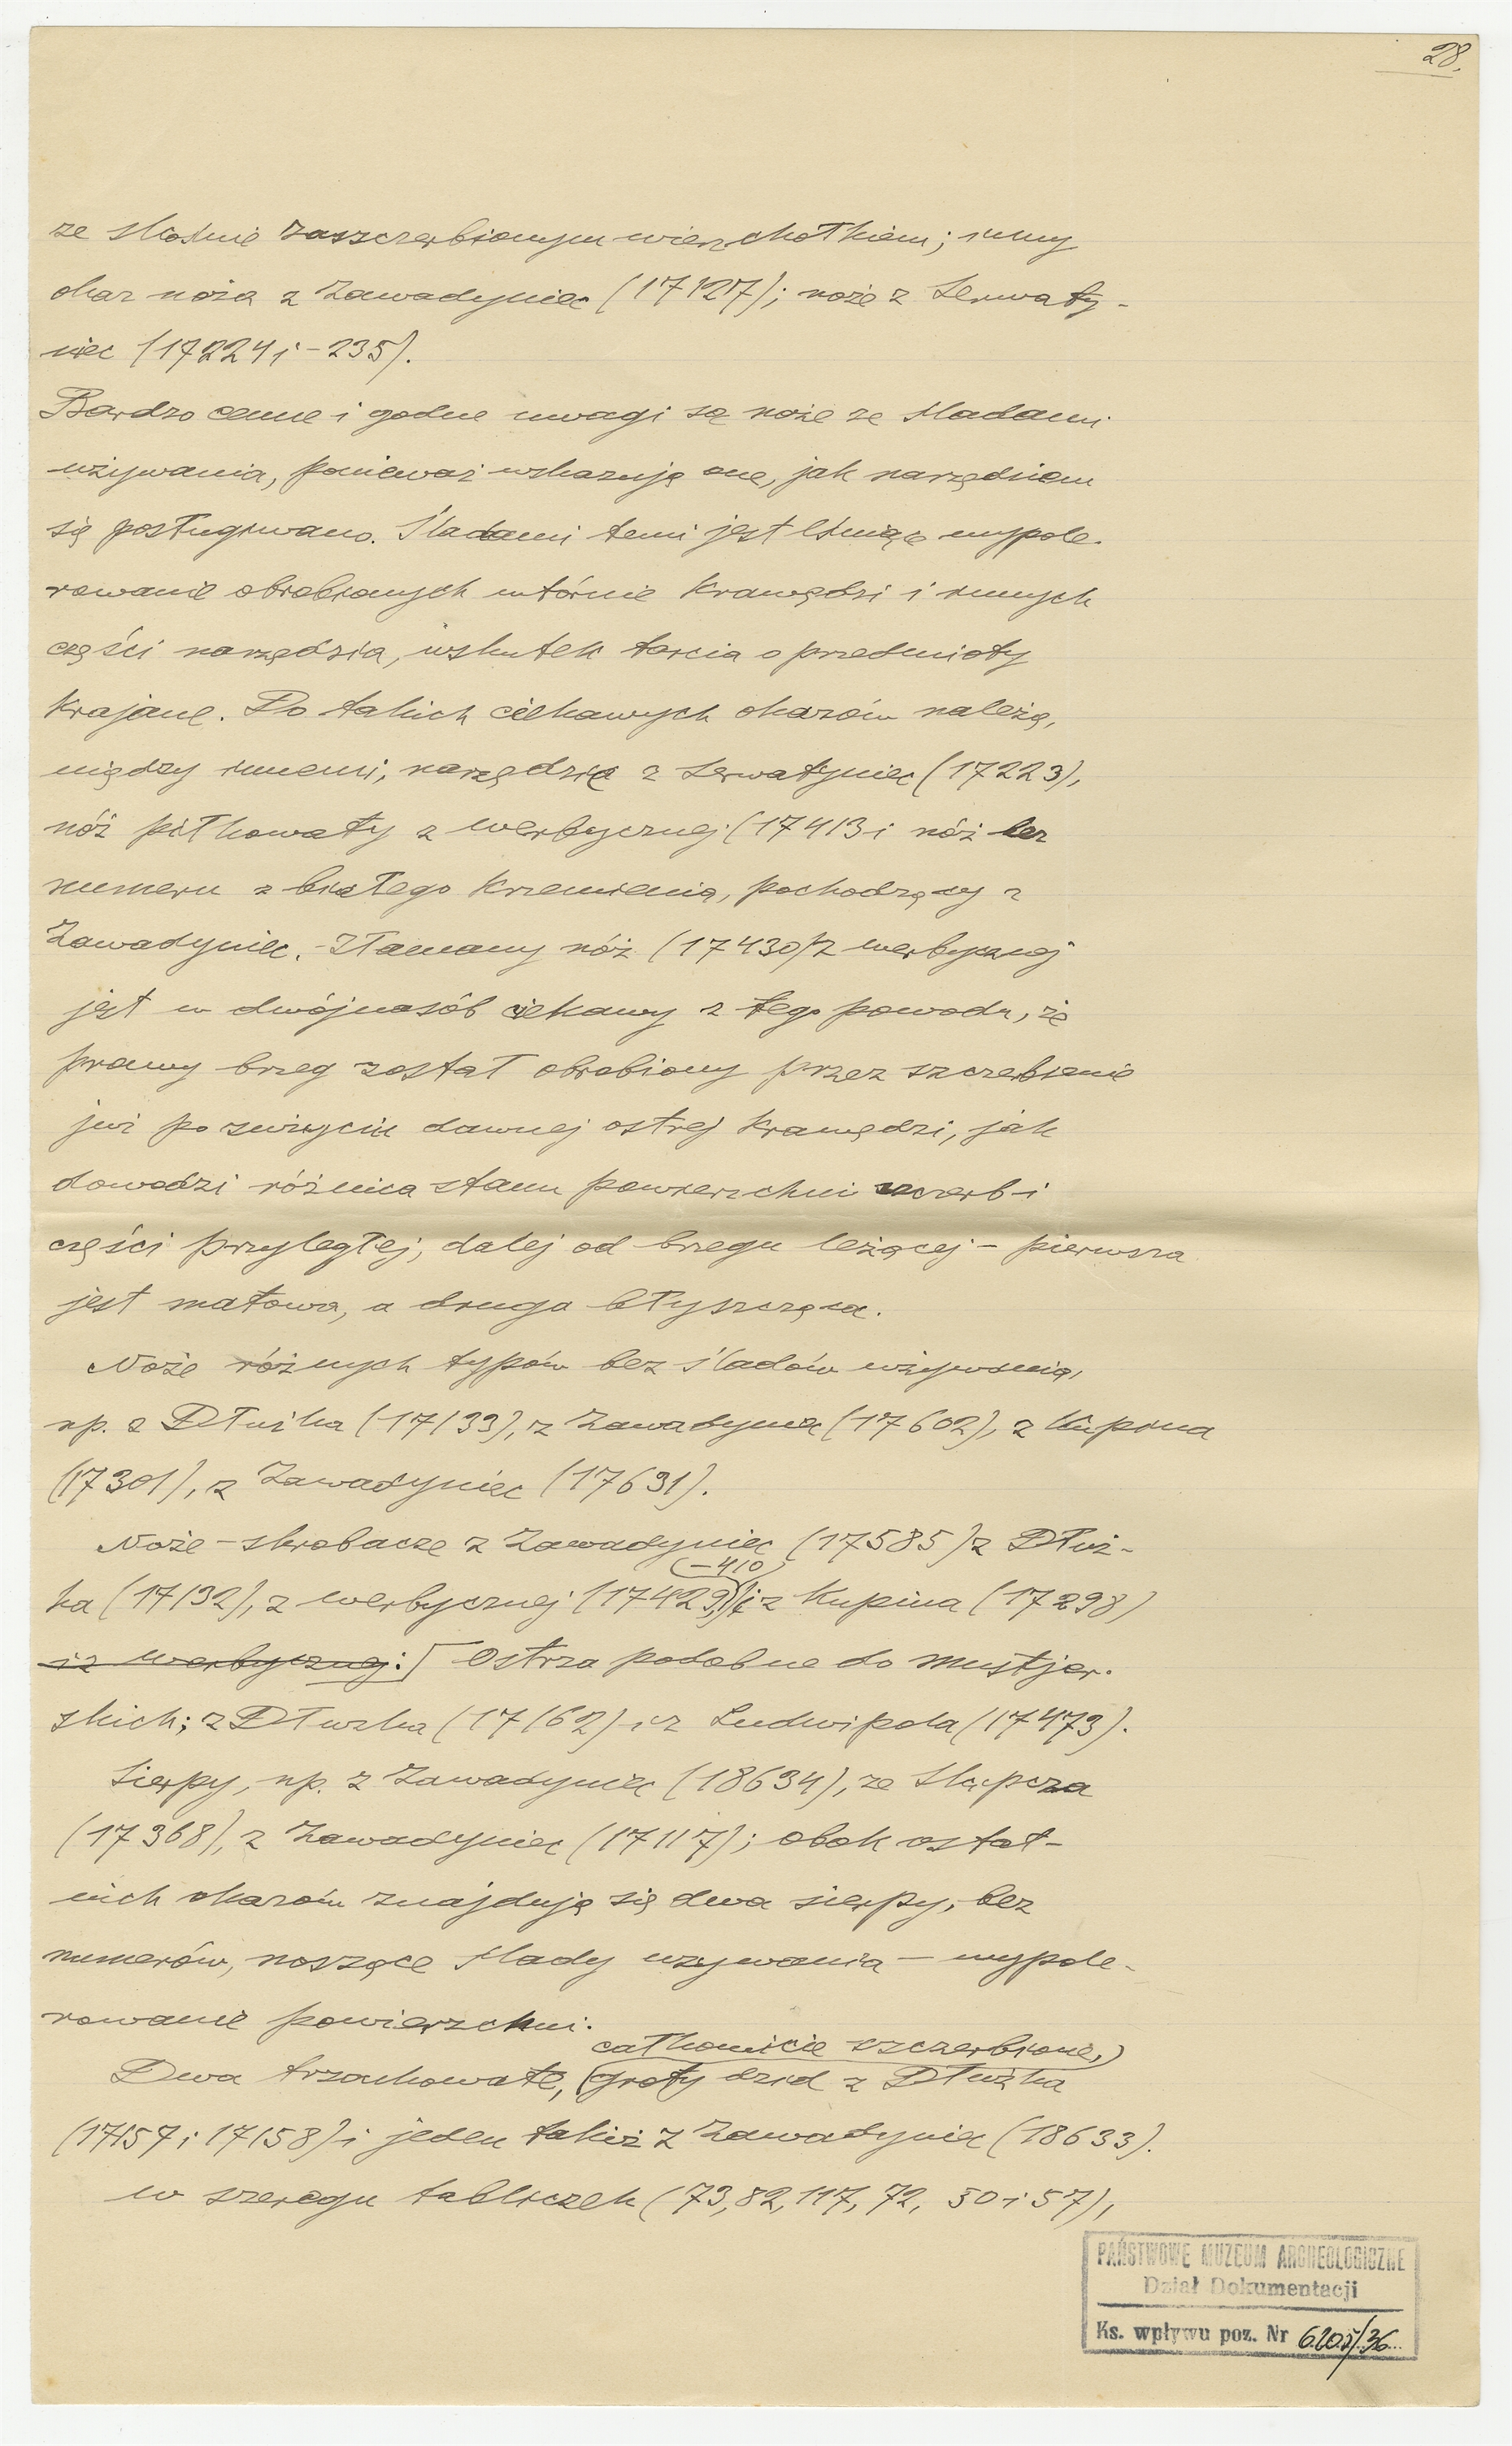 28.
ze skośnie zaszczerbionym wierzchołkiem; inny
okaz noża z Zawadyniec (17127); noże z Serwaty-
niec (17224 i -235).
Bardzo cenne i godne uwagi są noże ze śladami
używania, ponieważ wskazują one, jak narzędziem
się posługiwano. Śladami temi jest lśniące wypole-
rowanie obrobionych wtórnie krawędzi i innych
części narzędzia, wskutek tarcia o przedmioty
krajane. Do takich ciekawych okazów należą,
między innemi, narzędzie z Serwatyniec (17223),
nóż piłkowaty z Werbycznej (17413 i nóż bez
numeru z białego krzemienia, pochodzący z
Zawadyniec. Złamany nóż (17430) z Werbycznej
jest w dwójnasób ciekawy z tego powodu, że
prawy brzeg został obrobiony przez szczerbienie
już po zużyciu dawnej ostrej krawędzi, jak
dowodzi różnica stanu powierzchni szczerb i
części przyległej, dalej od brzegu leżącej - pierwsza
jest matowa, a druga błyszcząca.
Noże różnych typów bez śladów używania,
np. z Dłużka (17133), z Zawadyniec (17602), z Kupina
(17301), z Zawadyniec (17631).
Noże-skrobacze z Zawadyniec (17585) z Dłuż-
(-410)
ka (17132), z Werbycznej (17429) i z Kupina (17298)
i z Werbycznej: Ostrza podobne do mustjer-
skich; z Dłużka (17162) i z Ludwipola (17473).
Sierpy, np. z Zawadyniec (18634), ze Słupcza
(17368), z Zawadyniec (17117); obok ostat-
nich okazów znajdują się dwa sierpy, bez
numerów, noszące ślady używania - wypole-
rowanie powierzchni.
całkowicie szczerbione,
Dwa trzoukowate, groty dzid z Dłużka
(17157 i 17158) i jeden takiż z Zawadyniec (18633).
W szeregu tabliczek (73, 82, 117, 72, 50 i 57),
PAŃSTWOWE MUZEUM ARCHEOLOGICZNE
Dział Dokumentacji
Ks. wpływu poz. Nr 6205/36